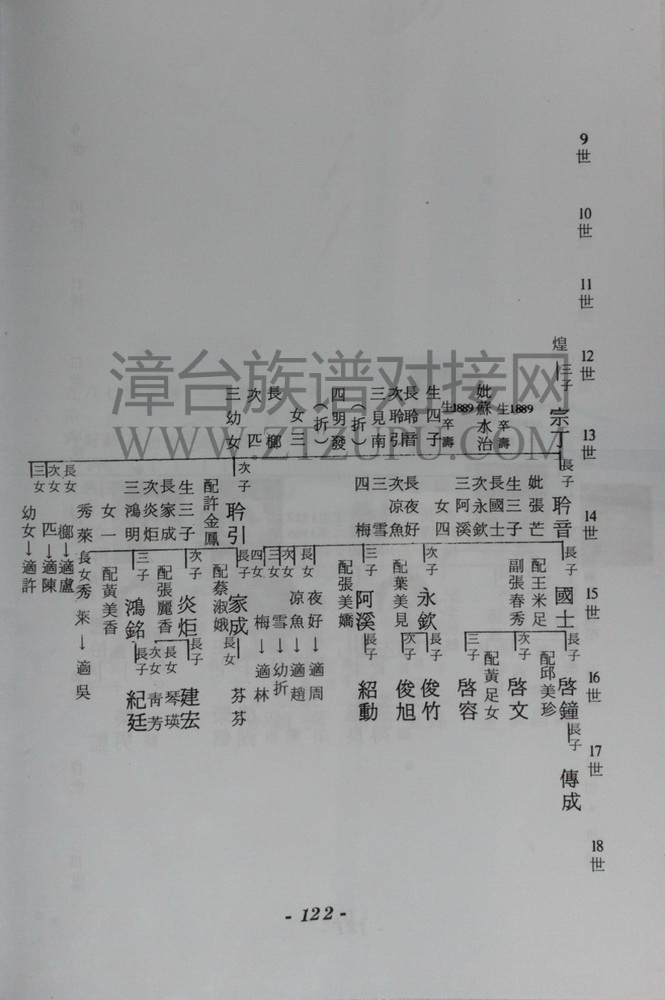 9世
10世
11世
12世
13世
14世
15世
16世
17世
18世
煌
三子
宗丁
生1889
卒
壽
妣蘇水治
生1889
卒
壽
生四子
長聆音
次聆引
三見南
(折)
四明發
(折)
女三
長榔
次匹
三幼女
長子
聆音
妣張芒
生三子
長國士
次永欽
三阿溪
女四
長夜好
次凉魚
三雪
四梅
次子
聆引
配許金鳳
生三子
長家成
次炎炬
三鴻明
女一
秀萊
長女
榔→適盧
次女
匹→適陳
三女
幼女→適許
長子
國士
配王米足
副張春秀
次子
永欽
配葉美見
三子
阿溪
配張美嬌
長女
夜好→適周
次女
凉魚→適趙
三女
雪→幼折
四女
梅→適林
長子
家成
配蔡淑娥
次子
炎炬
配張麗香
三子
鴻銘
配黃美香
長女
秀萊→適吳
長子
啓鐘
配邱美珍
次子
啓文
配黃足女
三子
啓容
長子
俊竹
次子
俊旭
長子
紹動
長女
芬芬
長子
建宏
長女
琴瑛
次女
靑芳
長子
紀廷
長子
傳成
- 122 -
漳台族谱对接网
WWW.ZTZUPU.COM